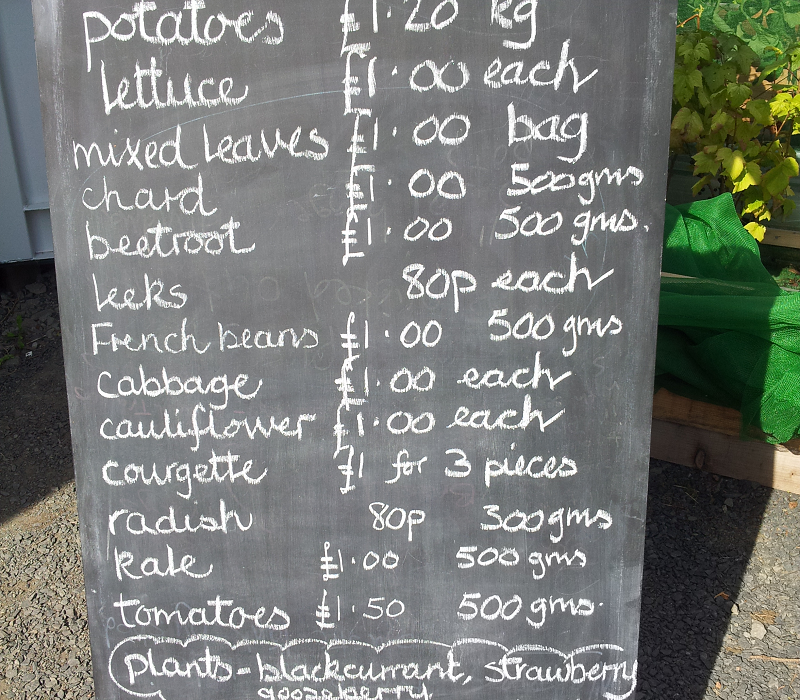 potatoes £1.20 kg
lettuce £1.00 each
mixed leaves £1.00 bag
chard £1.00 500gms
beetroot £1.00 500 gms.
leeks 80p each
French beans £1.00 500gms
cabbage £1.00 each
cauliflower £1.00 each
courgette £1 for 3 pieces
radish 80p 300gms
kale £1.00 500gms
tomatoes £1.50 500gms.
plants - blackcurrant, strawberry
gooseberry